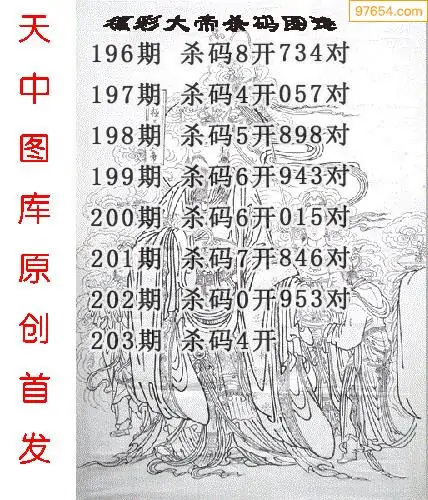 97654.com
福彩大帝杀码图选
196期 杀码8开734对
197期 杀码4开057对
198期 杀码5开898对
199期 杀码6开943对
200期 杀码6开015对
201期 杀码7开846对
202期 杀码0开953对
203期 杀码4开
天中图库原创首发